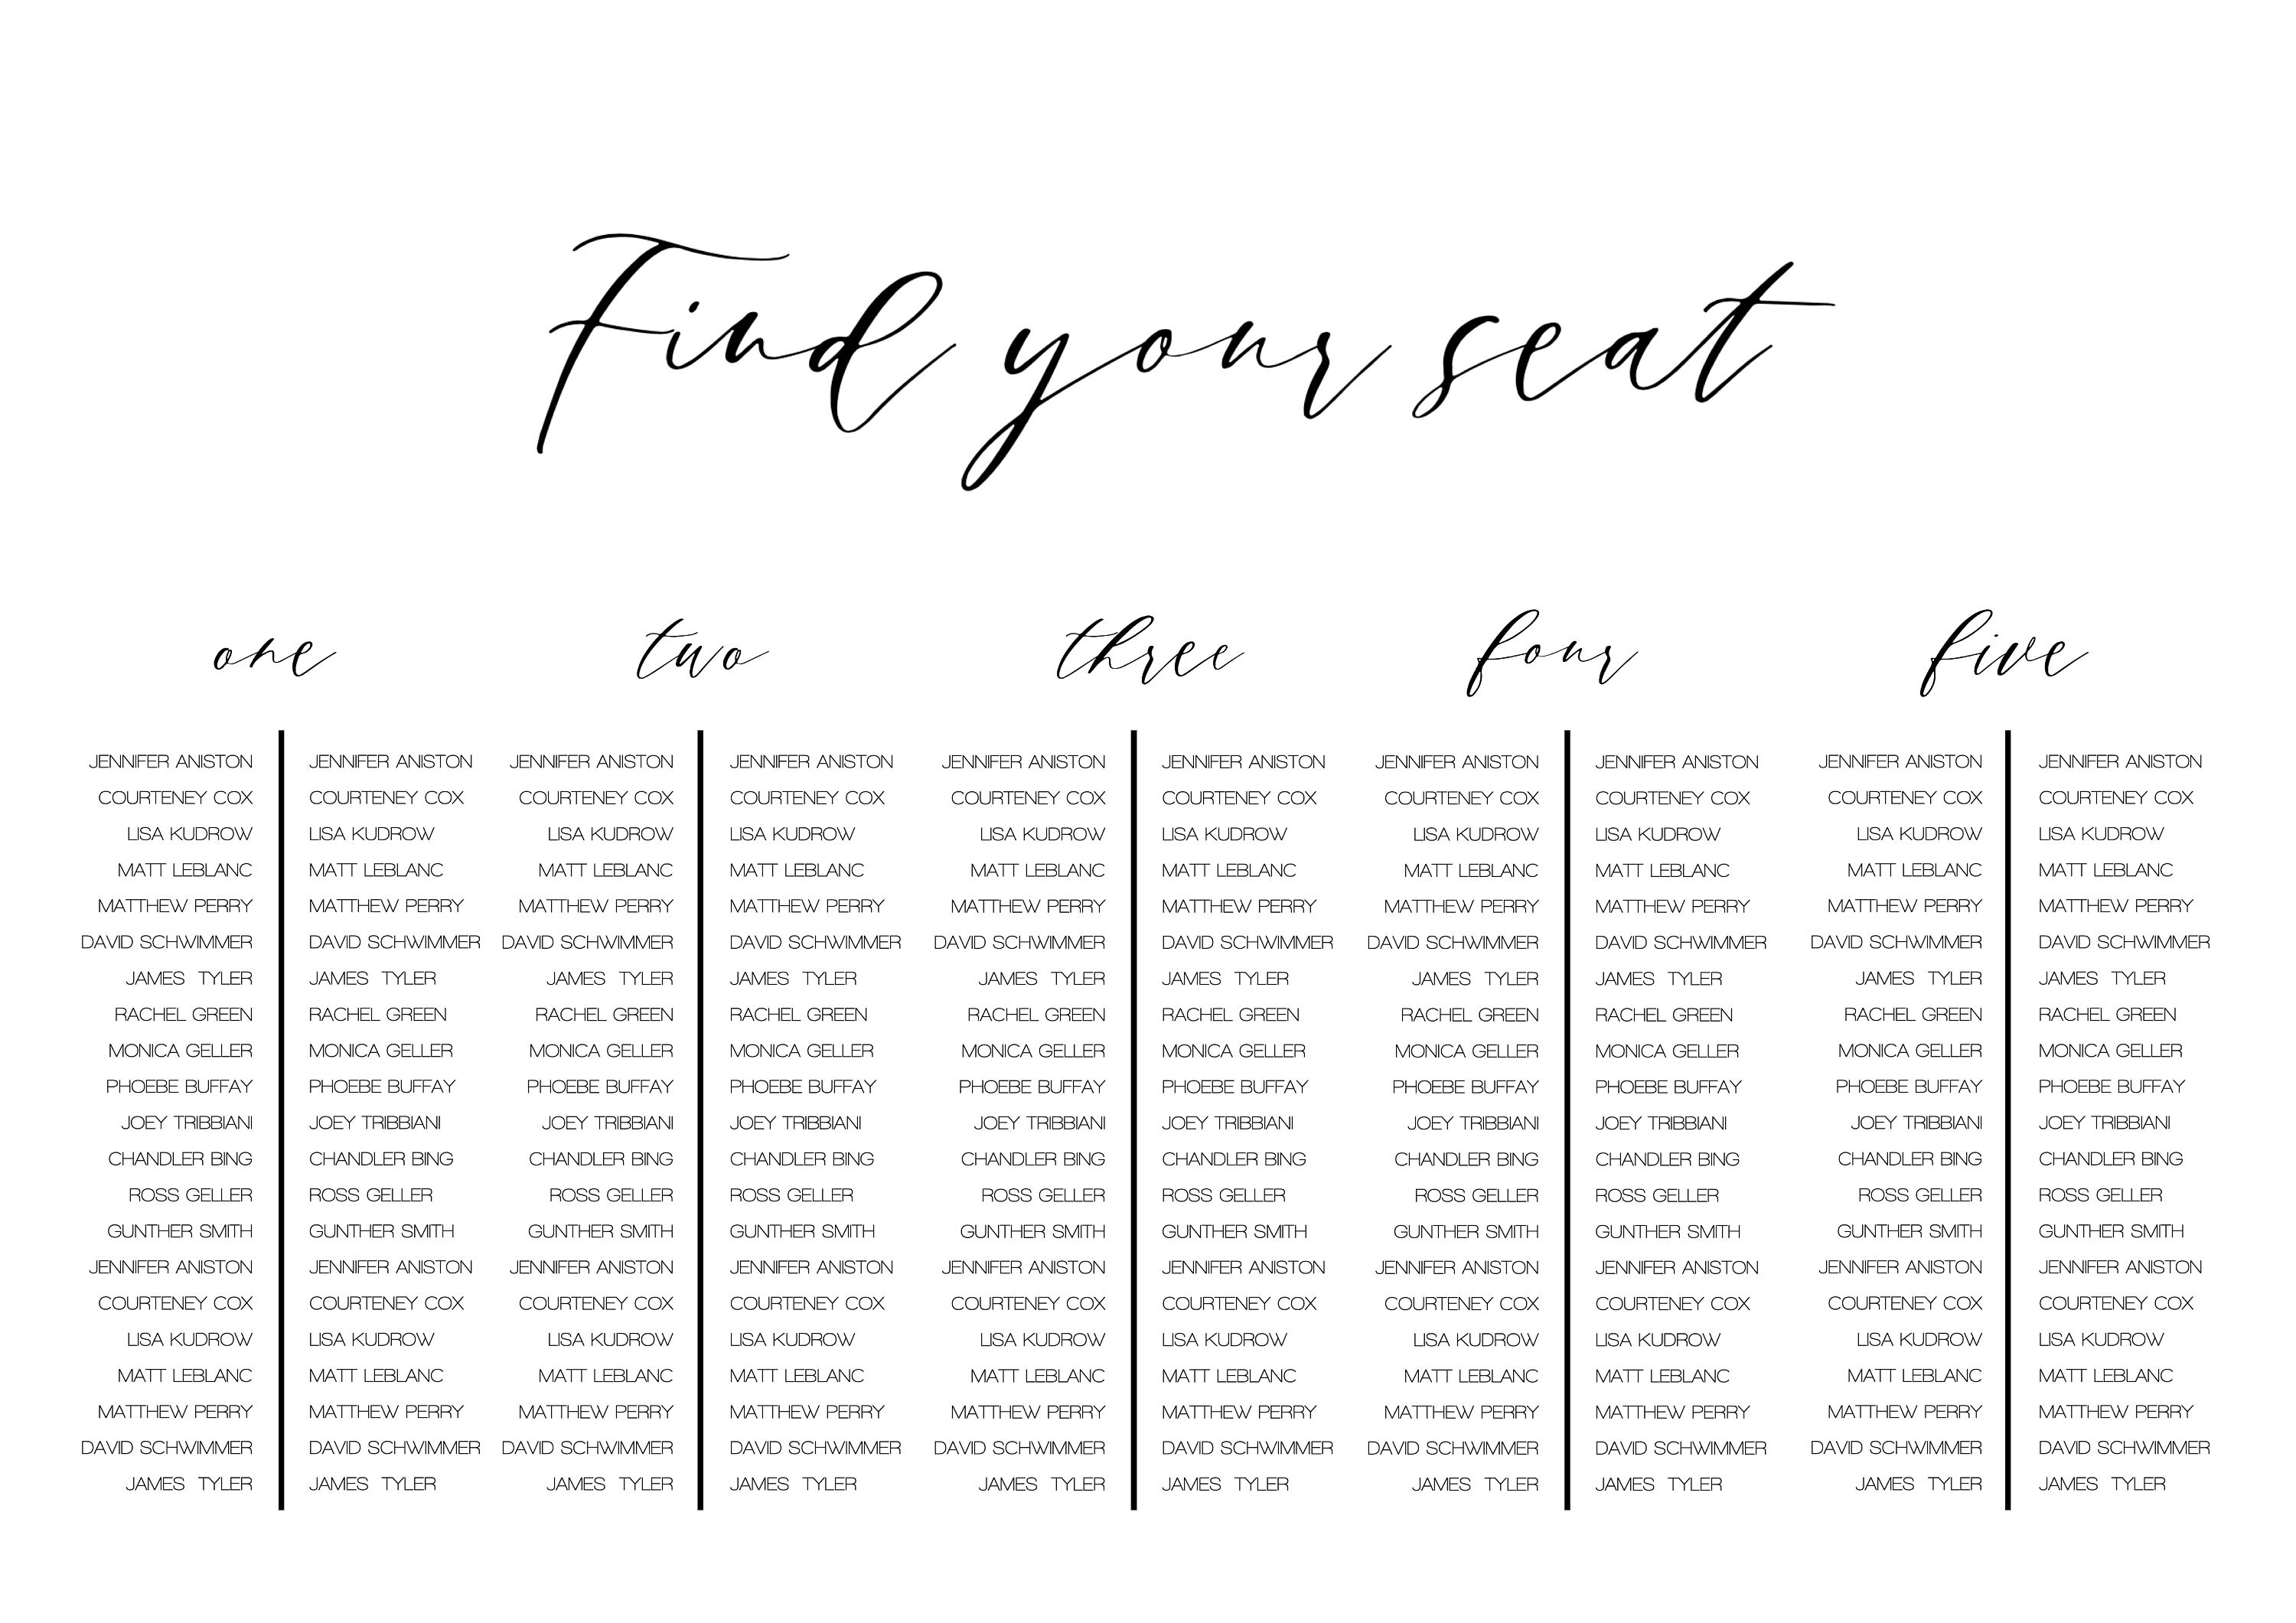 Find your seat
one two three four five
JENNIFER ANISTON JENNIFER ANISTON JENNIFER ANISTON JENNIFER ANISTON JENNIFER ANISTON JENNIFER ANISTON JENNIFER ANISTON JENNIFER ANISTON JENNIFER ANISTON JENNIFER ANISTON
COURTENEY COX COURTENEY COX COURTENEY COX COURTENEY COX COURTENEY COX COURTENEY COX COURTENEY COX COURTENEY COX COURTENEY COX COURTENEY COX
LISA KUDROW LISA KUDROW LISA KUDROW LISA KUDROW LISA KUDROW LISA KUDROW LISA KUDROW LISA KUDROW LISA KUDROW LISA KUDROW
MATT LEBLANC MATT LEBLANC MATT LEBLANC MATT LEBLANC MATT LEBLANC MATT LEBLANC MATT LEBLANC MATT LEBLANC MATT LEBLANC MATT LEBLANC
MATTHEW PERRY MATTHEW PERRY MATTHEW PERRY MATTHEW PERRY MATTHEW PERRY MATTHEW PERRY MATTHEW PERRY MATTHEW PERRY MATTHEW PERRY MATTHEW PERRY
DAVID SCHWIMMER DAVID SCHWIMMER DAVID SCHWIMMER DAVID SCHWIMMER DAVID SCHWIMMER DAVID SCHWIMMER DAVID SCHWIMMER DAVID SCHWIMMER DAVID SCHWIMMER DAVID SCHWIMMER
JAMES TYLER JAMES TYLER JAMES TYLER JAMES TYLER JAMES TYLER JAMES TYLER JAMES TYLER JAMES TYLER JAMES TYLER JAMES TYLER
RACHEL GREEN RACHEL GREEN RACHEL GREEN RACHEL GREEN RACHEL GREEN RACHEL GREEN RACHEL GREEN RACHEL GREEN RACHEL GREEN RACHEL GREEN
MONICA GELLER MONICA GELLER MONICA GELLER MONICA GELLER MONICA GELLER MONICA GELLER MONICA GELLER MONICA GELLER MONICA GELLER MONICA GELLER
PHOEBE BUFFAY PHOEBE BUFFAY PHOEBE BUFFAY PHOEBE BUFFAY PHOEBE BUFFAY PHOEBE BUFFAY PHOEBE BUFFAY PHOEBE BUFFAY PHOEBE BUFFAY PHOEBE BUFFAY
JOEY TRIBBIANI JOEY TRIBBIANI JOEY TRIBBIANI JOEY TRIBBIANI JOEY TRIBBIANI JOEY TRIBBIANI JOEY TRIBBIANI JOEY TRIBBIANI JOEY TRIBBIANI JOEY TRIBBIANI
CHANDLER BING CHANDLER BING CHANDLER BING CHANDLER BING CHANDLER BING CHANDLER BING CHANDLER BING CHANDLER BING CHANDLER BING CHANDLER BING
ROSS GELLER ROSS GELLER ROSS GELLER ROSS GELLER ROSS GELLER ROSS GELLER ROSS GELLER ROSS GELLER ROSS GELLER ROSS GELLER
GUNTHER SMITH GUNTHER SMITH GUNTHER SMITH GUNTHER SMITH GUNTHER SMITH GUNTHER SMITH GUNTHER SMITH GUNTHER SMITH GUNTHER SMITH GUNTHER SMITH
JENNIFER ANISTON JENNIFER ANISTON JENNIFER ANISTON JENNIFER ANISTON JENNIFER ANISTON JENNIFER ANISTON JENNIFER ANISTON JENNIFER ANISTON JENNIFER ANISTON JENNIFER ANISTON
COURTENEY COX COURTENEY COX COURTENEY COX COURTENEY COX COURTENEY COX COURTENEY COX COURTENEY COX COURTENEY COX COURTENEY COX COURTENEY COX
LISA KUDROW LISA KUDROW LISA KUDROW LISA KUDROW LISA KUDROW LISA KUDROW LISA KUDROW LISA KUDROW LISA KUDROW LISA KUDROW
MATT LEBLANC MATT LEBLANC MATT LEBLANC MATT LEBLANC MATT LEBLANC MATT LEBLANC MATT LEBLANC MATT LEBLANC MATT LEBLANC MATT LEBLANC
MATTHEW PERRY MATTHEW PERRY MATTHEW PERRY MATTHEW PERRY MATTHEW PERRY MATTHEW PERRY MATTHEW PERRY MATTHEW PERRY MATTHEW PERRY MATTHEW PERRY
DAVID SCHWIMMER DAVID SCHWIMMER DAVID SCHWIMMER DAVID SCHWIMMER DAVID SCHWIMMER DAVID SCHWIMMER DAVID SCHWIMMER DAVID SCHWIMMER DAVID SCHWIMMER DAVID SCHWIMMER
JAMES TYLER JAMES TYLER JAMES TYLER JAMES TYLER JAMES TYLER JAMES TYLER JAMES TYLER JAMES TYLER JAMES TYLER JAMES TYLER